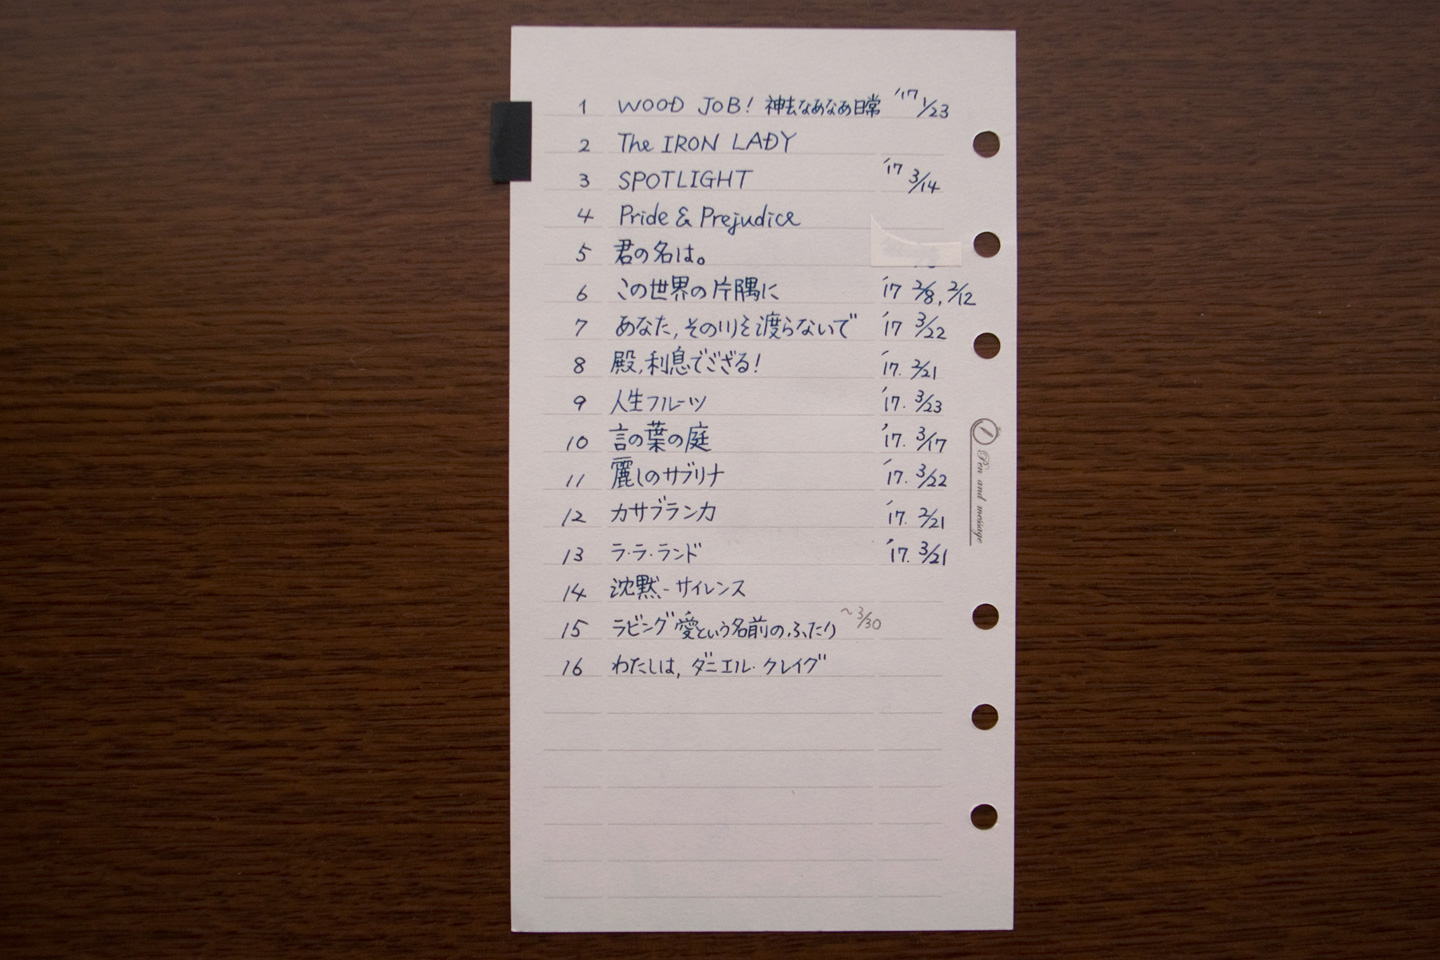 1 WOOD JOB! 神去なあなあ日常 '17 1/23
2 The IRON LADY
3 SPOTLIGHT '17 3/14
4 Pride & Prejudice
5 君の名は。
6 この世界の片隅に '17 2/8, 2/12
7 あなた,その川を渡らないで '17 3/22
8 殿,利息でござる! '17. 2/21
9 人生フルーツ '17. 3/23
10 言の葉の庭 '17. 3/17
11 麗しのサブリナ '17. 3/22
12 カサブランカ '17. 2/21
13 ラ・ラ・ランド '17. 3/21
14 沈黙-サイレンス
15 ラビング 愛という名前のふたり ~3/30
16 わたしは, ダニエル・クレイグ
Pen and message